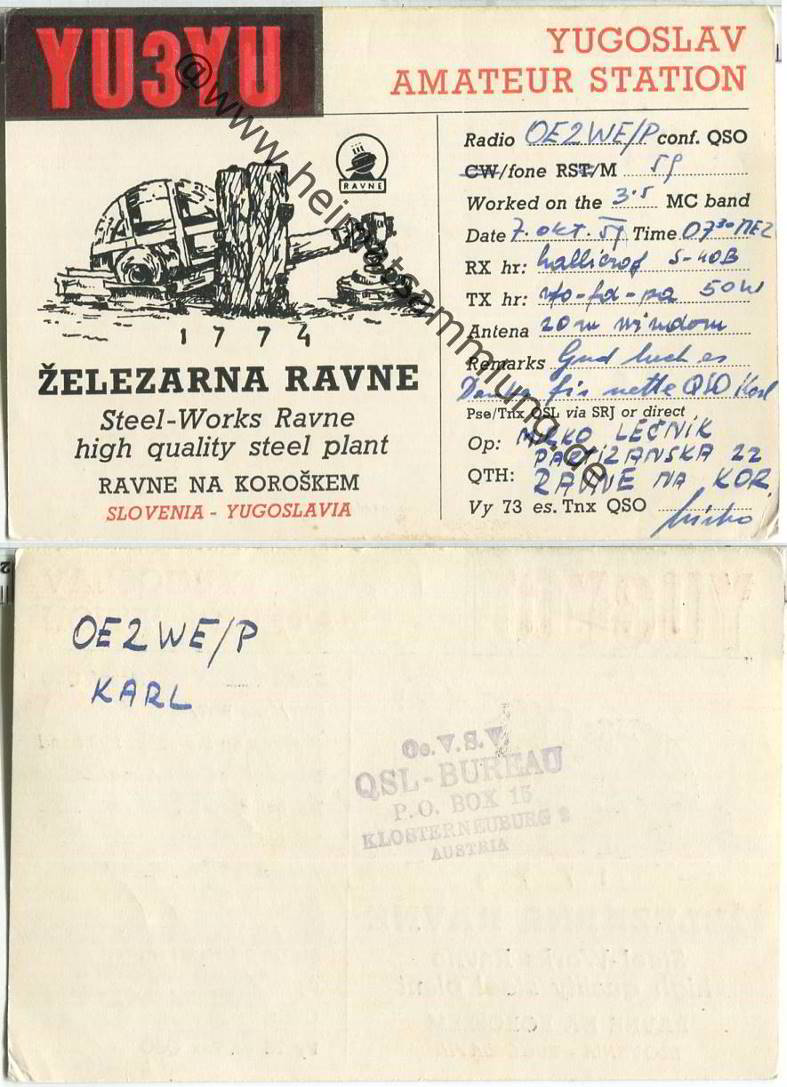 YU3YU
YUGOSLAV
AMATEUR STATION
RAVNE
1774
ŽELEZARNA RAVNE
Steel-Works Ravne
high quality steel plant
RAVNE NA KOROŠKEM
SLOVENIA - YUGOSLAVIA
Radio OE2WE/P conf. QSO
CW/fone RST/M 59
Worked on the 3.5 MC band
Date 7. okt. 59 Time 07³⁰ MEZ
RX hr: hallicraf S-40B
TX hr: vfo-fd-pa 50W
Antena 20m windom
Remarks Gud luck es
Danke für nette QSO Karl
Pse/Tnx QSL via SRJ or direct
Op: MIRKO LEČNIK
PARTIZANSKA 22
QTH: RAVNE NA KOR.
Vy 73 es. Tnx QSO Mirko
@www.heimatsammlung.de
OE2WE/P
KARL
Oe.V.S.V.
QSL-BUREAU
P.O. BOX 15
KLOSTERNEUBURG 2
AUSTRIA